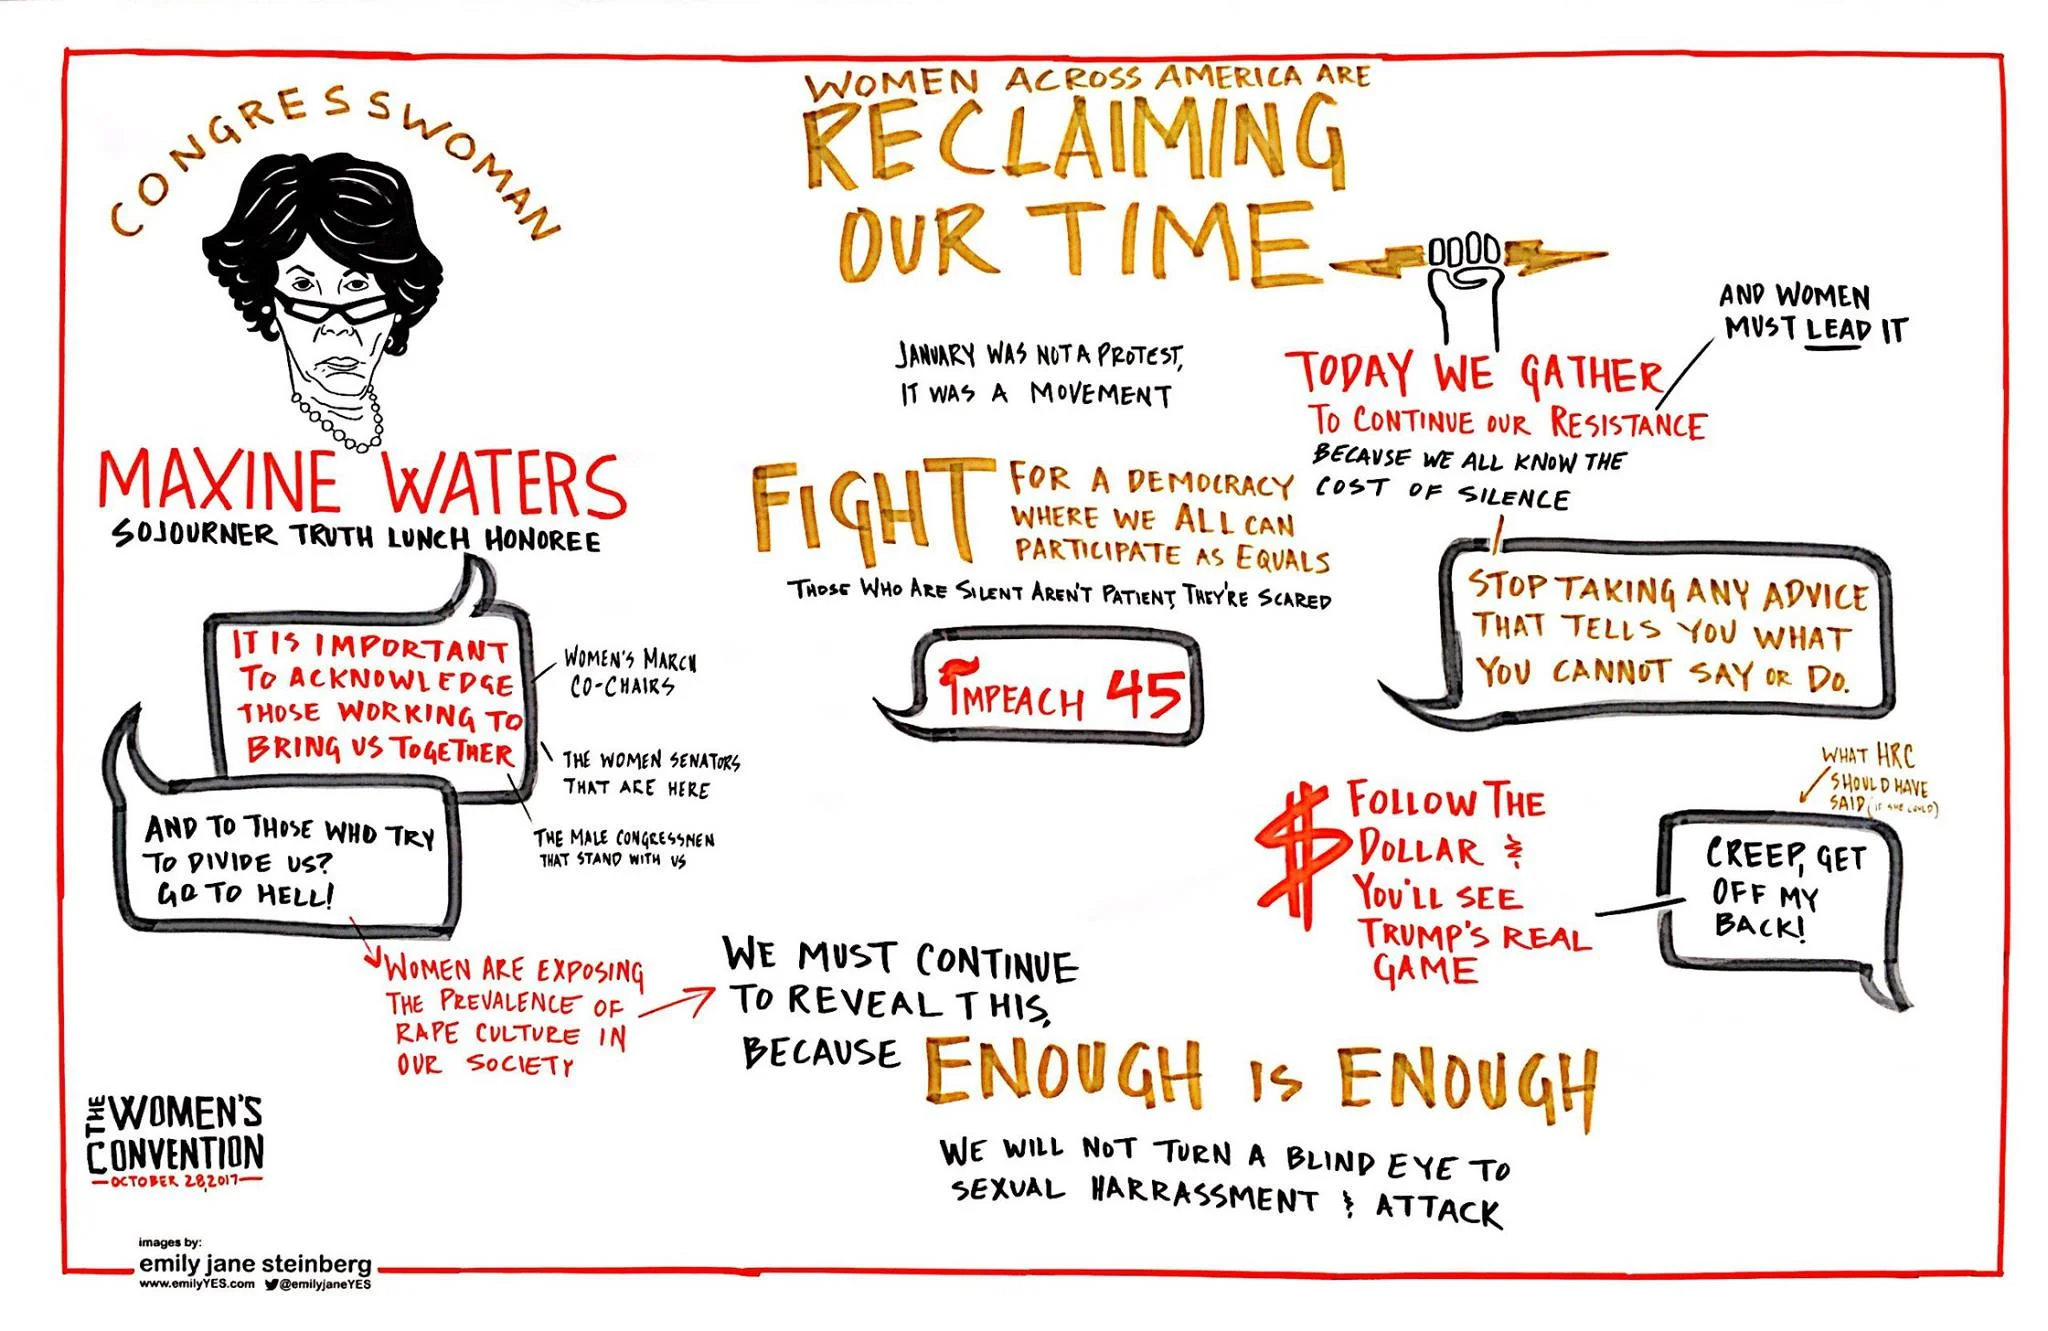 CONGRESSWOMAN
MAXINE WATERS
SOJOURNER TRUTH LUNCH HONOREE
IT IS IMPORTANT
TO ACKNOWLEDGE
THOSE WORKING TO
BRING US TOGETHER
WOMEN'S MARCH
CO-CHAIRS
THE WOMEN SENATORS
THAT ARE HERE
THE MALE CONGRESSMEN
THAT STAND WITH US
AND TO THOSE WHO TRY
TO DIVIDE US?
GO TO HELL!
WOMEN ARE EXPOSING
THE PREVALENCE OF
RAPE CULTURE IN
OUR SOCIETY
WE MUST CONTINUE
TO REVEAL THIS,
BECAUSE ENOUGH IS ENOUGH
WE WILL NOT TURN A BLIND EYE TO
SEXUAL HARRASSMENT & ATTACK
WOMEN ACROSS AMERICA ARE
RECLAIMING
OUR TIME
JANUARY WAS NOT A PROTEST,
IT WAS A MOVEMENT
TODAY WE GATHER
TO CONTINUE OUR RESISTANCE
BECAUSE WE ALL KNOW THE
COST OF SILENCE
AND WOMEN
MUST LEAD IT
FIGHT FOR A DEMOCRACY
WHERE WE ALL CAN
PARTICIPATE AS EQUALS
THOSE WHO ARE SILENT AREN'T PATIENT, THEY'RE SCARED
IMPEACH 45
STOP TAKING ANY ADVICE
THAT TELLS YOU WHAT
YOU CANNOT SAY OR DO.
$ FOLLOW THE
DOLLAR &
YOU'LL SEE
TRUMP'S REAL
GAME
WHAT HRC
SHOULD HAVE
SAID (IF SHE COULD)
CREEP, GET
OFF MY
BACK!
THE WOMEN'S
CONVENTION
OCTOBER 28, 2017
images by:
emily jane steinberg
www.emilyYES.com @emilyjaneYES